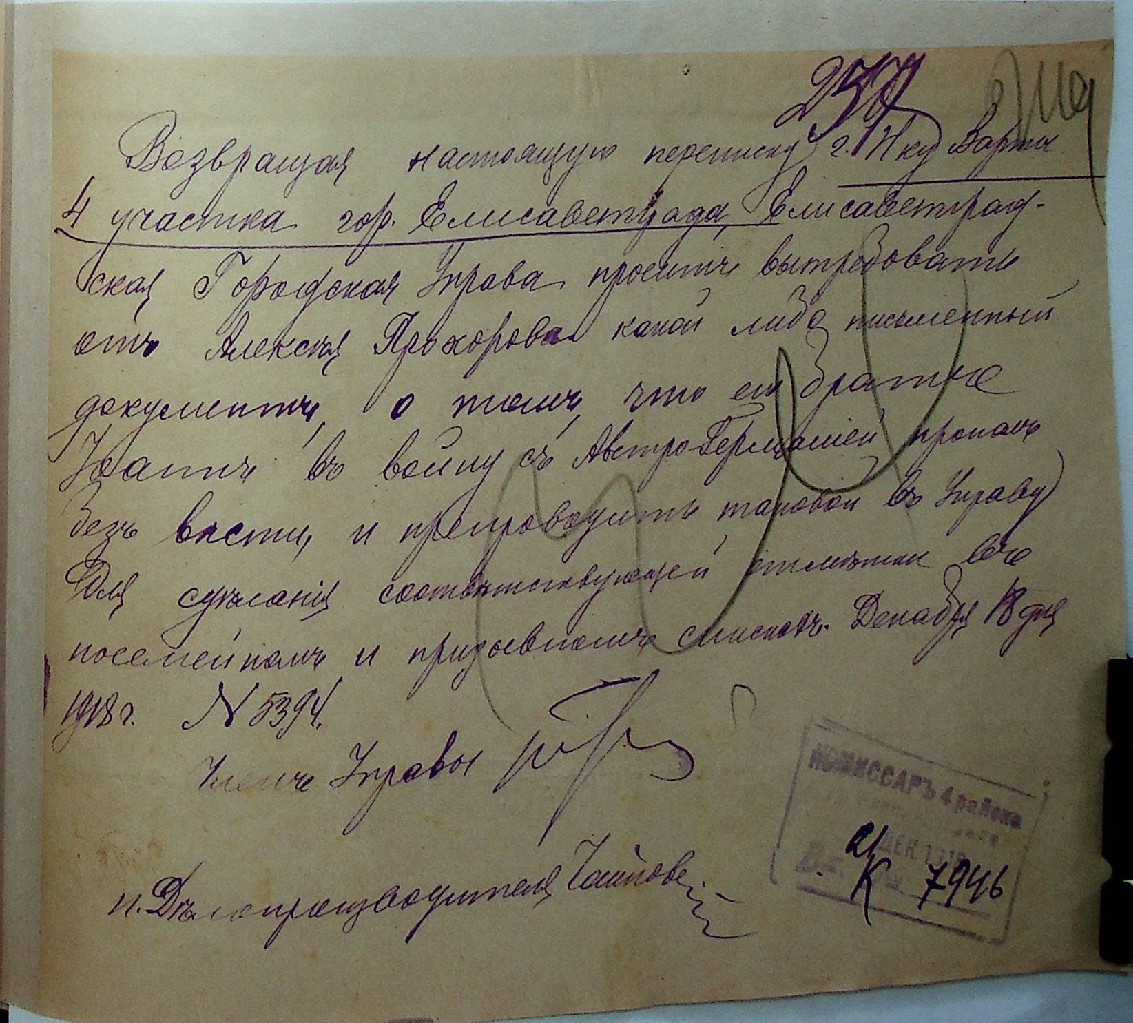 257
Возвращая настоящую переписку г. Н-ку Варты
4 участка гор. Елисаветграда, Елисаветград-
ская Городская Управа проситъ вытребовать
отъ Алексѣя Прохорова какой либо письменный
документъ, о томъ, что его братъ
Иоаннъ въ войну съ Австро-Германіей пропалъ
безъ вѣсти, и препроводить таковой въ Управу
для сдѣланія соотвѣтствующей отмѣтки въ
посемейномъ и призывномъ спискахъ. Декабря 18 дня
1918 г. N 5394.
Членъ Управы
п. Дѣлопроизводителя
КОМИССАРЪ 4 района
ДЕК. 1918
7946